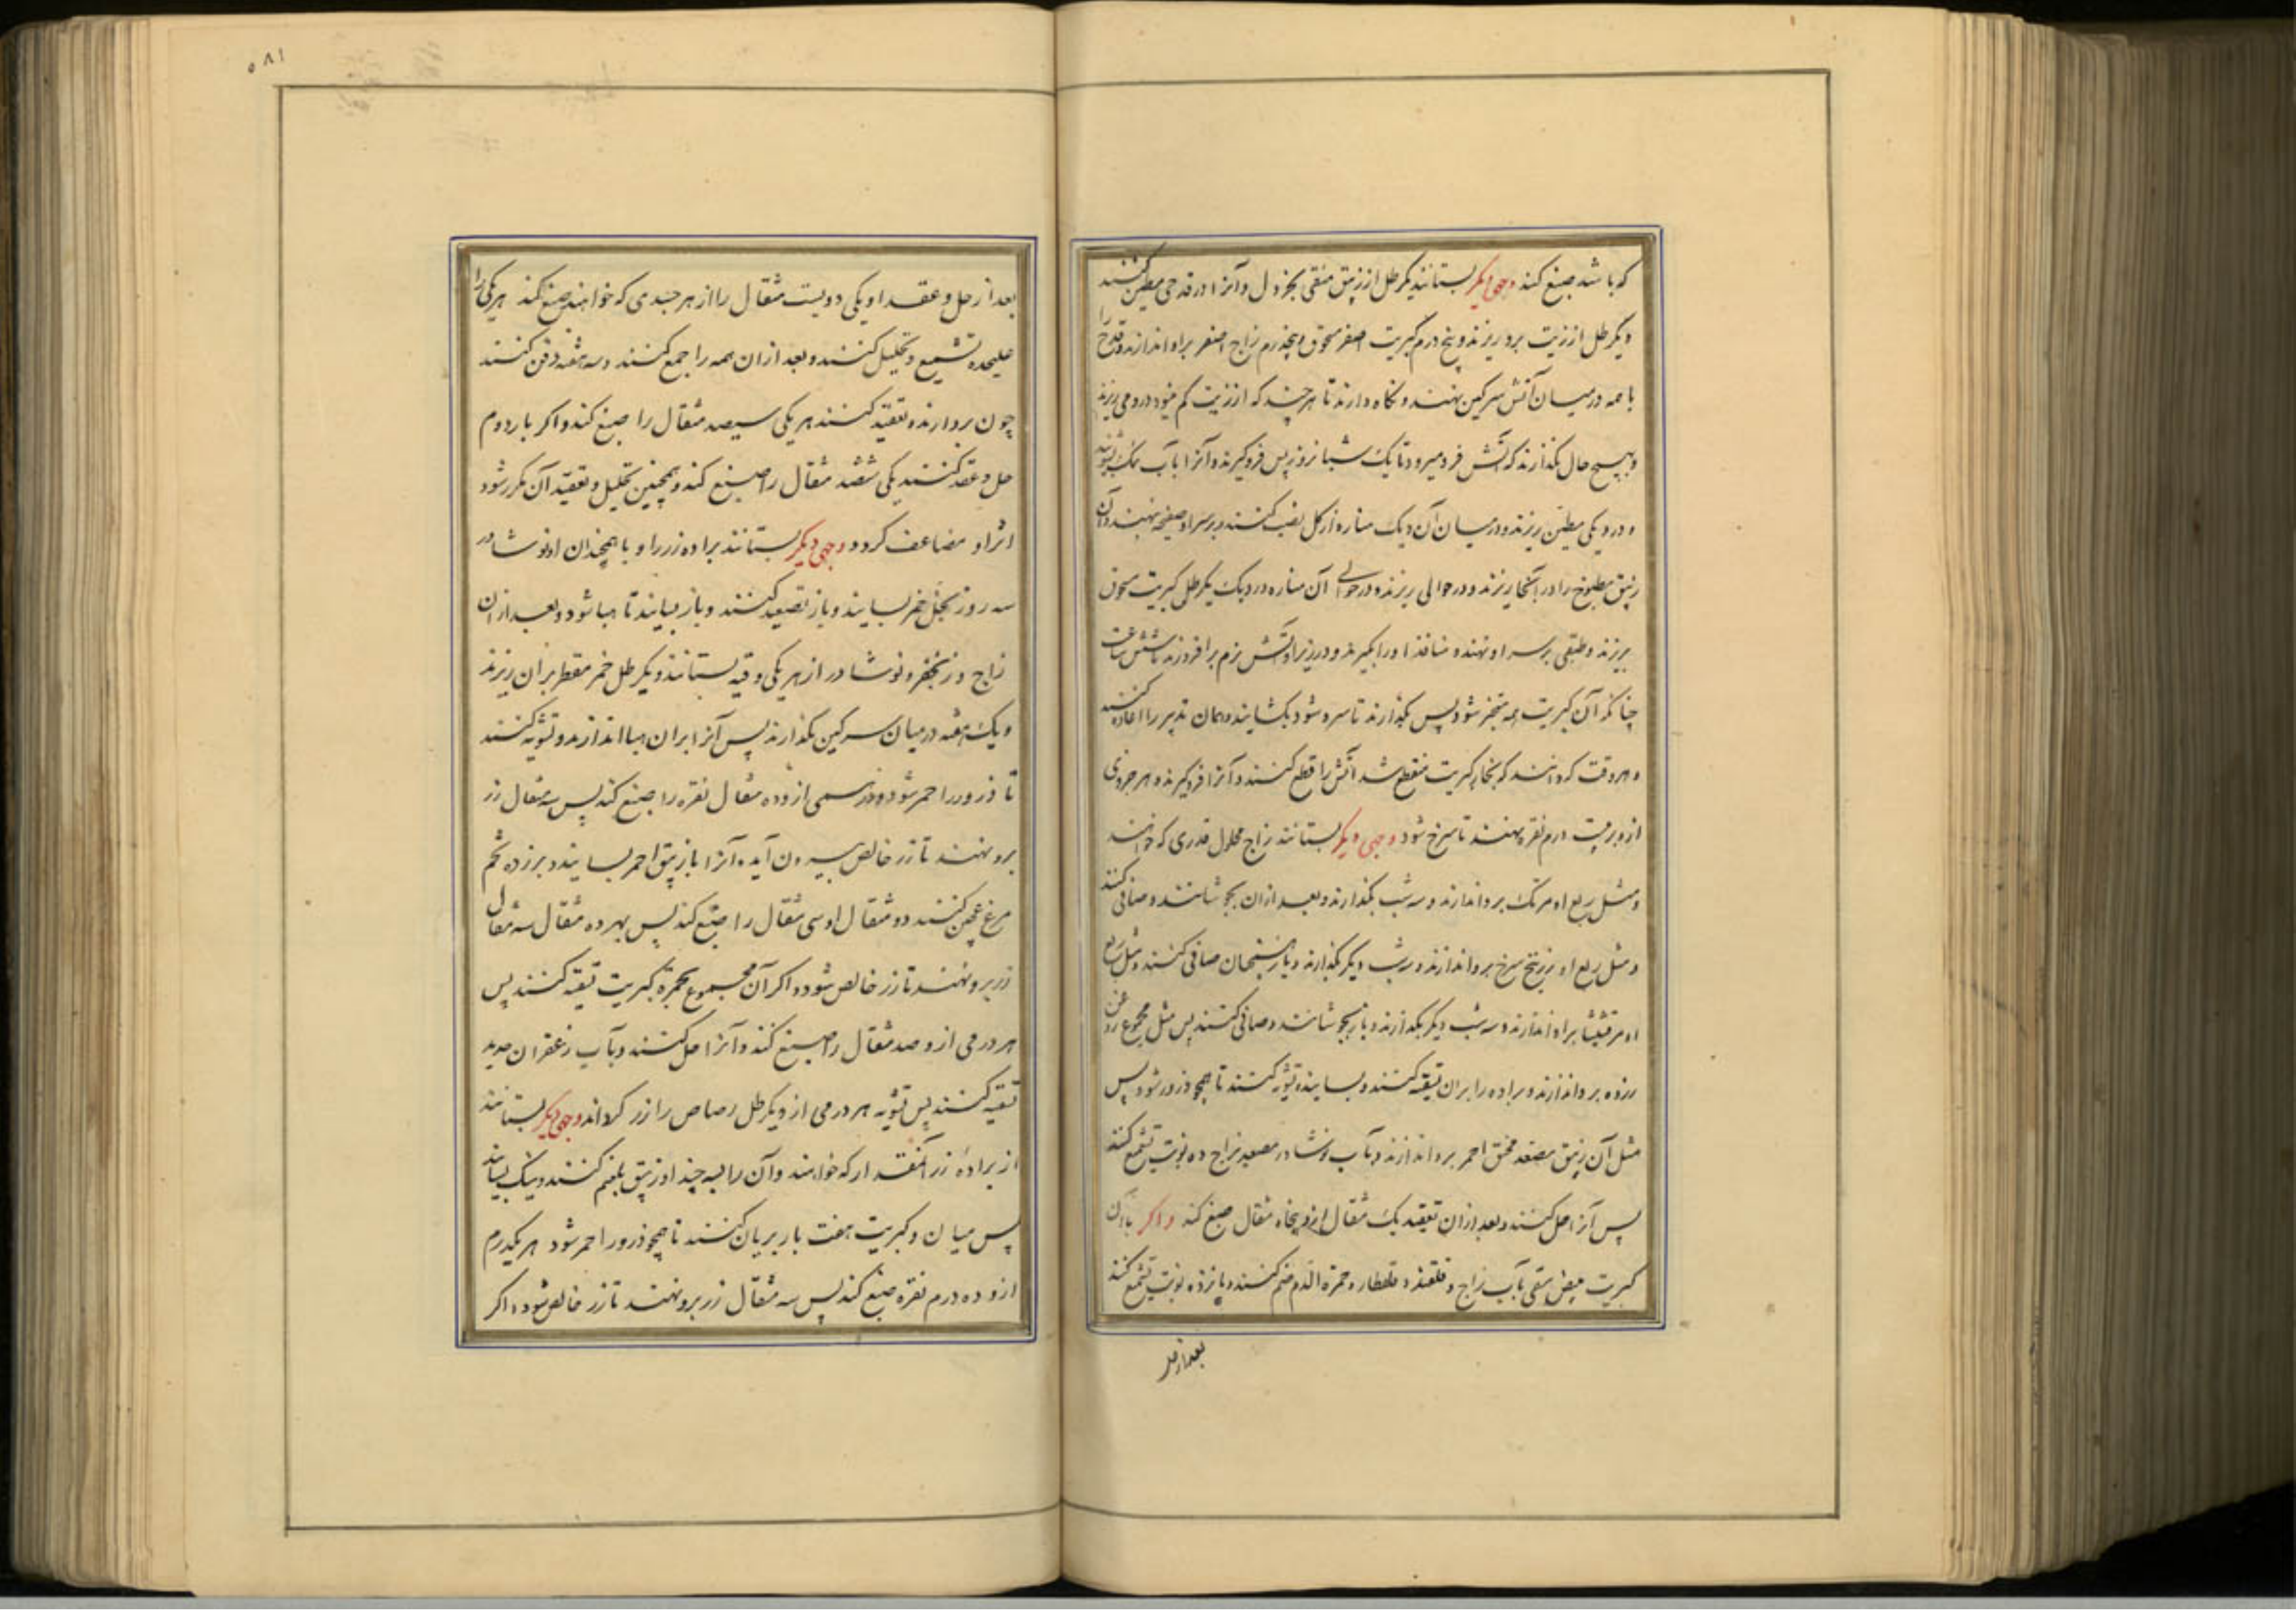 که باشد صبغ کند وجهی دیگر بستانند یکرطل از زیبق منقی بخردل و آنرا در قدحی مطین کنند
و یکرطل از زیت برو ریزند و پنج درم کبریت اصفر مسحوق و پنجدرم زاج اصفر بر او اندازند و قدح را
با همه در میان آتش سرکین نهند و نکاه دارند تا هر چند که از زیت کم میشود درو می ریزند
و بهیچ حال نکذارند که آتش فرو میرود تا یک شبانروز پس فرو کیرند و آنرا بآب نمک بشویند
و در دیکی مطین ریزند و در میان آن دیک مناره از کل نصب کنند و بر سر او صفحه نهند و آن
زیبق مطبوخ را در آنجا ریزند و در حوالی ریزند و در حوالی آن مناره در دیک یکرطل کبریت مسحوق
بریزند و طبقی بر سر او نهند و منافذ او را بکیرند و در زیر او آتش نرم بر افروزند تا شش ساعت
چنانکه آن کبریت همه متبخر شود پس بکذارند تا سرد شود بکشایند و همان تدبیر را اعاده کنند
و هر وقت که دانند که بخار کبریت منقطع شد آتش را قطع کنند و آنرا فرو کیرند و هر جزوی
ازو بر بیست درم نقره نهند تا سرخ شود وجهی دیگر بستانند زاج محلول قدری که خواهند
و مثل ربع او مرتک برو اندازند و سه شب بکذارند و بعد از ان بجوشانند و صافی کنند
و مثل ربع او زرنیخ سرخ برو اندازند و سه شب دیکر بکذارند و باز همچنان صافی کنند و مثل ربع
او مرقشیشا بر او اندازند و سه شب دیکر بکذارند و باز بجوشانند و صافی کنند پس مثل مجموع
زرده برو اندازند و براده را بران تسقیه کنند و بسایند و تشویه کنند تا همچو ذرور شود پس
مثل آن زیبق مصعد محمر برو اندازند و بآب نوشادر مصعد بزاج ده نوبت تشمیع کنند
پس آنرا حل کنند و بعد از ان تعقید یک مثقال ازو پنجاه مثقال صبغ کند و اگر با آن
کبریت مبیض مسقی بآب زاج و قلقند و قلقطار و حمرة الدم ضم کنند و پانزده نوبت تشمیع کنند
بعد از حل
۵۸۱
بعد از حل و عقد او یکی دویست مثقال را از هر جسدی که خواهند صبغ کند هر یکی را
علیحده تشمیع و تحلیل کنند و بعد از ان همه را جمع کنند و سه هفته دفن کنند
چون بردارند و تعقید کنند هر یکی سیصد مثقال را صبغ کند و اکر بار دوم
حل و عقد کنند یکی ششصد مثقال را صبغ کند و همچنین تحلیل و تعقید آن مکرر شود
اثر او مضاعف کردد وجهی دیگر بستانند براده زر را و با همچندان او نوشادر
سه روز بخل خمر بسایند و باز تصعید کنند و باز بسایند تا هبا شود و بعد از ان
زاج و زنجفر و نوشادر از هر یکی وقیه بستانند و یکرطل خمر مقطر بران ریزند
و یک هفته در میان سرکین بکذارند پس آنرا بران هبا اندازند و تشویه کنند
تا ذرور احمر شود و درمی ازو ده مثقال نقره را صبغ کند پس سه مثقال زر
برو نهند تا زر خالص بیرون آید و آنرا با زیبق احمر بسایند و بر زرده تخم
مرغ عجین کنند دو مثقال او سی مثقال را صبغ کند پس بهر ده مثقال سه مثقال
زر برو نهند تا زر خالص شود و اکر آن مجموع بحمرة کبریت تسقیه کنند پس
هر درمی ازو صد مثقال را صبغ کند و آنرا حل کنند و بآب زعفران حدید
تسقیه کنند پس تشویه هر درمی ازو یکرطل رصاص را زر کرداند وجهی دیگر بستانند
از براده زر آنمقدار که خواهند و آن را بسه چند او زیبق بلغم کنند و نیک بسایند
پس میان دو کبریت هفت بار بریان کنند تا همچو ذرور احمر شود هر یکدرم
ازو ده درم نقره صبغ کند پس سه مثقال زر برو نهند تا زر خالص شود و اکر